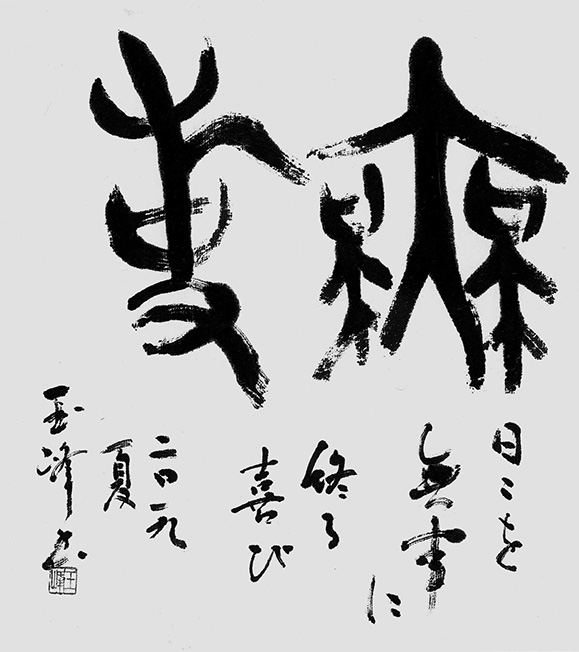 無事
日々を
無事に
終る
喜び
二〇一九
夏
玉峰書